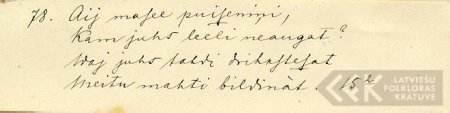 78. Aij masee puisenini,
Kam juhs leeli neaugat?
Waj juhs tahdi drihkstesat
Meitu mahti bildinàt. 15²
LATVIEŠU
FOLKLORAS
KRĀTUVE